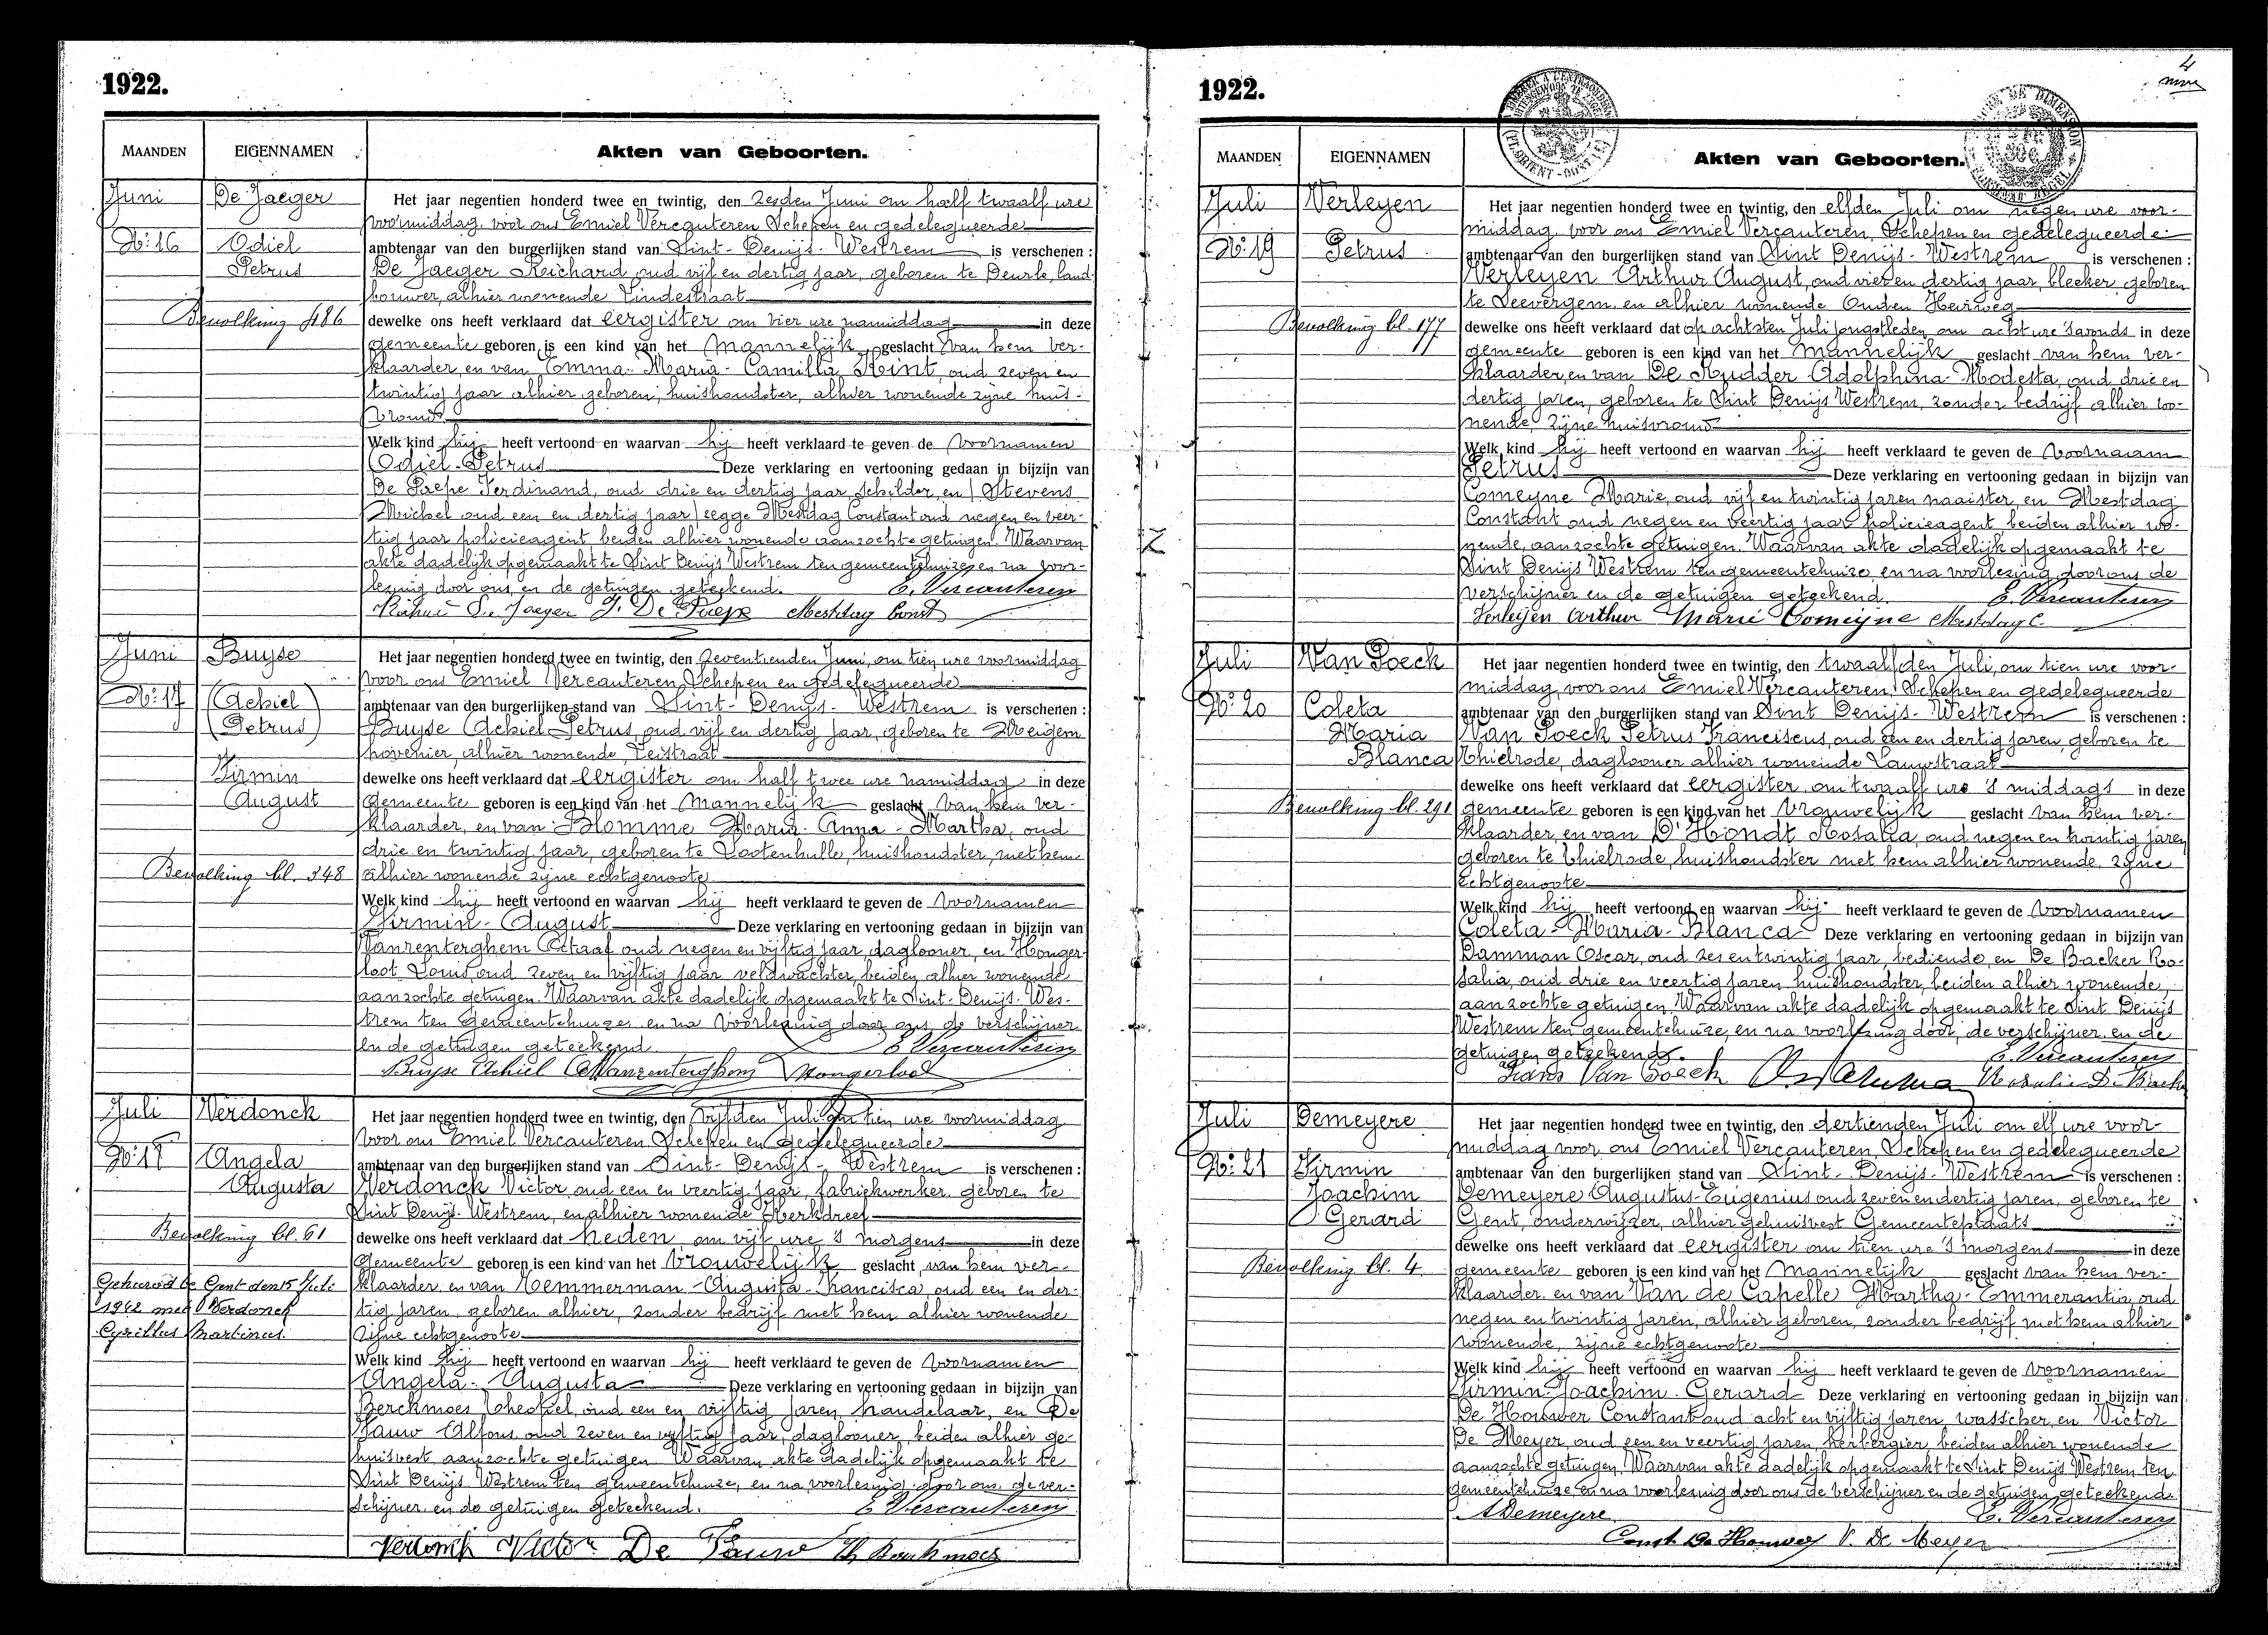 1922.
MAANDEN EIGENNAMEN Akten van Geboorten.
Juni De Jaeger
No. 16 Odiel
Petrus
Bevolking 486
Het jaar negentien honderd twee en twintig, den zesden Juni om half twaalf ure
voormiddag, voor ons Emiel Vercauteren Schepen en gedelegueerde
ambtenaar van den burgerlijken stand van Sint-Denijs-Westrem is verschenen :
De Jaeger Richard, oud vijf en dertig jaar, geboren te Deurle, land-
bouwer, alhier wonende Lindestraat
dewelke ons heeft verklaard dat eergister om vier ure namiddag in deze
gemeente geboren is een kind van het mannelijk geslacht van hem ver-
klaarder, en van Emma-Maria-Camilla Kint, oud zeven en
twintig jaar alhier geboren, huishoudster, alhier wonende zijne huis-
vrouw
Welk kind hij heeft vertoond en waarvan hij heeft verklaard te geven de voornamen
Odiel-Petrus Deze verklaring en vertooning gedaan in bijzijn van
De Paepe Ferdinand, oud drie en dertig jaar, schilder, en (Stevens
Michel oud een en dertig jaar) zegge Mestdag Constant oud negen en veer-
tig jaar policieagent beiden alhier wonende aanzochte getuigen. Waarvan
akte dadelijk opgemaakt te Sint Denijs Westrem ten gemeentehuize, en na voor-
lezing door ons, en de getuigen geteekend. E. Vercauteren
De Jaeger F. De Paepe Mestdag Const
Juni Buyse
No. 17 (Achiel
(Petrus)
Firmin
August
Bevolking bl. 348
Het jaar negentien honderd twee en twintig, den zeventienden Juni, om tien ure voormiddag
voor ons Emiel Vercauteren, Schepen en gedelegueerde
ambtenaar van den burgerlijken stand van Sint-Denijs-Westrem is verschenen :
Buyse (Achiel-Petrus, oud vijf en dertig jaar, geboren te Meigem
hovenier, alhier wonende, Leistraat
dewelke ons heeft verklaard dat eergister om half twee ure namiddag in deze
gemeente geboren is een kind van het mannelijk geslacht van hem ver-
klaarder, en van Blomme Maria-Anna-Martha, oud
drie en twintig jaar, geboren te Lootenhulle, huishoudster, met hem
alhier wonende zijne echtgenoote
Welk kind hij heeft vertoond en waarvan hij heeft verklaard te geven de voornamen
Firmin-August Deze verklaring en vertooning gedaan in bijzijn van
Vanrenterghem Gustaaf oud negen en vijftig jaar, daglooner, en Honger-
loot Louis, oud zeven en vijftig jaar veldwachter, beiden alhier wonende
aanzochte getuigen. Waarvan akte dadelijk opgemaakt te Sint-Denijs-Wes-
trem ten gemeentehuize, en na voorlezing door ons, de verschijner
en de getuigen geteekend E. Vercauteren
Buyse Achiel G Vanrenterghem Hongerloot
Juli Verdonck
No. 18 Angela
Augusta
Bevolking bl. 61
Gehuwd te Gent den 15 Juli
1942 met Verdonck
Cyrillus Martinus.
Het jaar negentien honderd twee en twintig, den vijfden Juli om tien ure voormiddag
voor ons Emiel Vercauteren Schepen en gedelegueerde
ambtenaar van den burgerlijken stand van Sint-Denijs-Westrem is verschenen :
Verdonck Victor, oud een en veertig jaar, fabriekwerker, geboren te
Sint Denijs-Westrem, en alhier wonende Kerkdreef
dewelke ons heeft verklaard dat heden om vijf ure 's morgens in deze
gemeente geboren is een kind van het vrouwelijk geslacht van hem ver-
klaarder, en van Temmerman-Augusta-Francisca, oud een en der-
tig jaren, geboren alhier, zonder bedrijf met hem alhier wonende
zijne echtgenoote
Welk kind hij heeft vertoond en waarvan hij heeft verklaard te geven de voornamen
Angela-Augusta Deze verklaring en vertooning gedaan in bijzijn van
Berckmoes Theofiel, oud een en vijftig jaren, handelaar, en De
Pauw Alfons oud zeven en vijftig jaar, daglooner, beiden alhier ge-
huisvest aanzochte getuigen Waarvan akte dadelijk opgemaakt te
Sint Denijs Westrem ten gemeentehuize, en na voorlezing door ons, de ver-
schijner en de getuigen geteekend. E. Vercauteren
Verdonck Victor De Pauw Th Berckmoes
4
1922.
MAANDEN EIGENNAMEN Akten van Geboorten.
Juli Verleyen
No. 19 Petrus
Bevolking bl. 177
Het jaar negentien honderd twee en twintig, den elfden Juli om negen ure voor-
middag voor ons Emiel Vercauteren, Schepen en gedelegueerde
ambtenaar van den burgerlijken stand van Sint Denijs-Westrem is verschenen :
Verleyen Arthur August, oud vier en dertig jaar, bleeker, geboren
te Seevergem, en alhier wonende Ouden Heirweg
dewelke ons heeft verklaard dat op achtsten Juli jongstleden om acht ure 's avonds in deze
gemeente geboren is een kind van het mannelijk geslacht van hem ver-
klaarder, en van De Rudder Adolphina-Modesta, oud drie en
dertig jaren, geboren te Sint Denijs Westrem, zonder bedrijf alhier wo-
nende, zijne huisvrouw
Welk kind hij heeft vertoond en waarvan hij heeft verklaard te geven de voornaam
Petrus Deze verklaring en vertooning gedaan in bijzijn van
Comeyne Marie, oud vijf en twintig jaren naaister, en Mestdag
Constant oud negen en veertig jaar policieagent beiden alhier wo-
nende, aanzochte getuigen. Waarvan akte dadelijk opgemaakt te
Sint Denijs Westrem ten gemeentehuize, en na voorlezing door ons de
verschijner en de getuigen geteekend. E. Vercauteren
Verleijen Arthur Marie Comeijne Mestdag C
Juli Van Poeck
No. 20 Coleta
Maria
Blanca
Bevolking bl. 291
Het jaar negentien honderd twee en twintig, den twaalfden Juli, om tien ure voor-
middag voor ons Emiel Vercauteren, Schepen en gedelegueerde
ambtenaar van den burgerlijken stand van Sint Denijs-Westrem is verschenen :
Van Poeck Petrus Franciscus, oud een en dertig jaren, geboren te
Thielrode, daglooner alhier wonende Lauwstraat
dewelke ons heeft verklaard dat eergister, om twaalf ure 's middags in deze
gemeente geboren is een kind van het vrouwelijk geslacht van hem ver-
klaarder, en van D'Hondt Rosalia, oud negen en twintig jaren
geboren te Thielrode, huishoudster met hem alhier wonende, zijne
echtgenoote
Welk kind hij heeft vertoond en waarvan hij heeft verklaard te geven de voornamen
Coleta-Maria-Blanca Deze verklaring en vertooning gedaan in bijzijn van
Damman Oscar, oud zes en twintig jaar, bediende, en De Backer Ro-
salia, oud drie en veertig jaren, huishoudster, beiden alhier wonende,
aanzochte getuigen, Waarvan akte dadelijk opgemaakt te Sint Denijs
Westrem ten gemeentehuize, en na voorlezing door, de verschijner, en de
getuigen geteekend. E. Vercauteren
Frans Van Poeck Rosalie De Backer
Juli Demeyere
No. 21 Firmin
Joachim
Gerard
Bevolking bl. 4
Het jaar negentien honderd twee en twintig, den dertienden Juli om elf ure voor-
middag voor ons Emiel Vercauteren, Schepen en gedelegueerde
ambtenaar van den burgerlijken stand van Sint-Denijs-Westrem is verschenen :
Demeyere Augustus-Eugenius oud zeven en dertig jaren, geboren te
Gent, onderwijzer, alhier gehuisvest Gemeenteplaats
dewelke ons heeft verklaard dat eergister om tien ure 's morgens in deze
gemeente geboren is een kind van het mannelijk geslacht van hem ver-
klaarder, en van Van de Capelle Martha-Emmerantia, oud
negen en twintig jaren, alhier geboren, zonder bedrijf met hem alhier
wonende, zijne echtgenoote
Welk kind hij heeft vertoond en waarvan hij heeft verklaard te geven de voornamen
Firmin-Joachim-Gerard Deze verklaring en vertooning gedaan in bijzijn van
De Houwer Constant oud acht en vijftig jaren, wasscher, en Victor
De Meyer, oud een en veertig jaren, herbergier, beiden alhier wonende
aanzochte getuigen. Waarvan akte dadelijk opgemaakt te Sint Denijs Westrem ten
gemeentehuize en na voorlezing door ons, de verschijner en de getuigen, geteekend
A Demeyere E. Vercauteren
Const De Houwer V. De Meyer